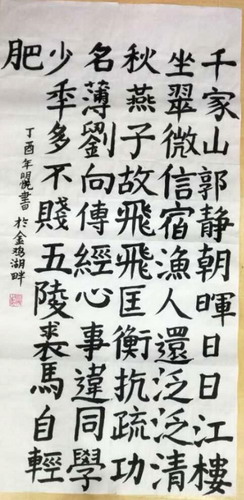 千家山郭静朝暉日日江樓
坐翠微信宿漁人還泛泛清
秋燕子故飛飛匡衡抗疏功
名薄劉向傳經心事違同學
少秊多不賤五陵裘馬自輕
肥
丁酉年明悦書於金鸡湖畔